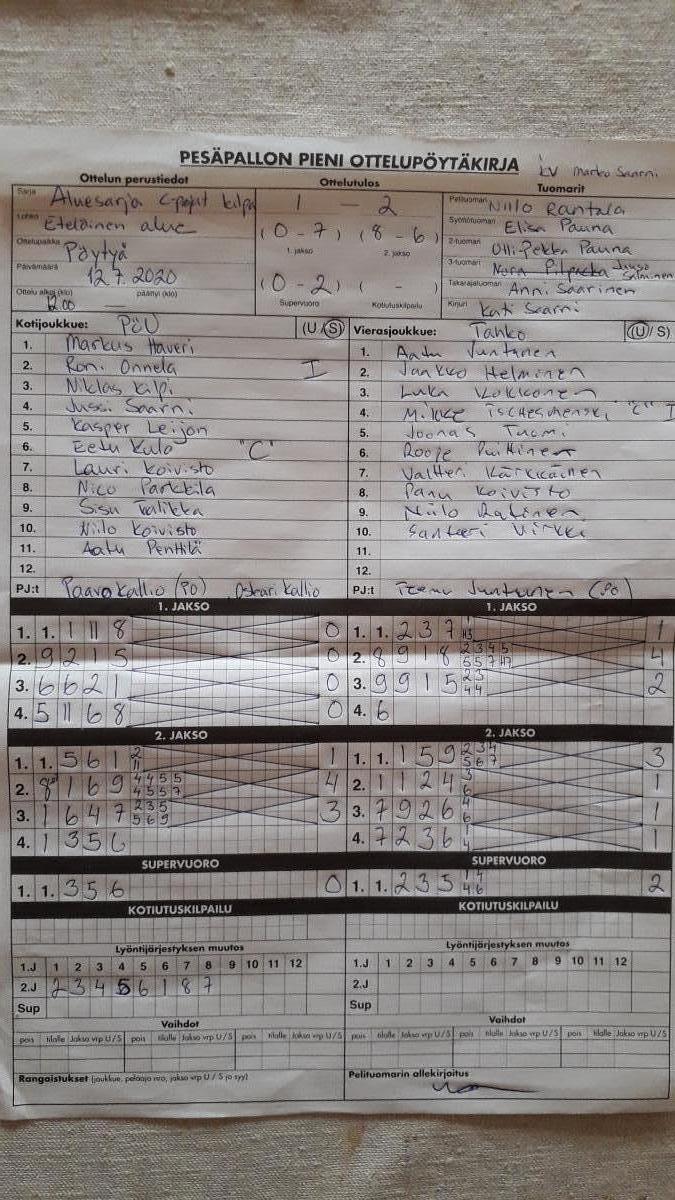 PESÄPALLON PIENI OTTELUPÖYTÄKIRJA
kv Marko Saarni
Ottelun perustiedot
Ottelutulos
Tuomarit
Sarja Aluesarja C-pojat kilpa
Lohko Eteläinen alue
Ottelupaikka Pöytyä
Päivämäärä 12.7.2020
Ottelu alkoi (klo) päättyi (klo)
12.00
1 - 2
(0 - 7) (8 - 6)
1. jakso 2. jakso
(0 - 2) ( - )
Supervuoro Kotiutuskilpailu
Pelituomari Niilo Rantala
Syöttötuomari Elisa Pauna
2-tuomari Olli-Pekka Pauna
3-tuomari Nora
Takarajatuomari Anni Saarinen
Kirjuri Kati Saarni
Kotijoukkue: PöU (U / S)
1. Markus Haveri
2. Roni Onnela I
3. Niklas Kilpi
4. Jussi Saarni
5. Kasper Leijon
6. Eetu Kulo "C"
7. Lauri Koivisto
8. Nico Parkkila
9. Sisu Talikka
10. Niilo Koivisto
11. Aatu Penttilä
12.
PJ:t Paavo Kallio (PO) Oskari Kallio
Vierasjoukkue: Tahko (U / S)
1. Aatu Juntunen
2. Jaakko Helminen
3. Luka Kokkonen
4. Mikke "C" I
5. Joonas Tuomi
6. Roope
7. Valtteri Kärkkäinen
8. Panu Koivisto
9. Niilo
10. Santeri Virkki
11.
12.
PJ:t Teemu Juntunen (PO)
1. JAKSO
1. 1. 1 11 8 0
2. 9 2 1 5 0
3. 6 6 2 1 0
4. 5 11 6 8 0
1. JAKSO
1. 1. 2 3 7 1
2. 8 9 1 8 2 3 4 5 4
3. 9 9 1 5 2 3 2
4 4
4. 6
2. JAKSO
1. 1. 5 6 1 2 1
11
2. 8 1 6 9 4 4 5 5 4
4 5 5 7
3. 1 6 4 7 2 3 5 3
5 6 9
4. 1 3 5 6
2. JAKSO
1. 1. 1 5 9 2 3 4 3
5 6 7
2. 1 1 2 4 3 1
6
3. 7 9 2 6 4 1
6
4. 7 2 3 6 1 1
4
SUPERVUORO
1. 1. 3 5 6 0
SUPERVUORO
1. 1. 2 3 5 1 4 2
4 6
KOTIUTUSKILPAILU
KOTIUTUSKILPAILU
Lyöntijärjestyksen muutos
1.J 1 2 3 4 5 6 7 8 9 10 11 12
2.J 2 3 4 5 6 1 8 7
Sup
Lyöntijärjestyksen muutos
1.J 1 2 3 4 5 6 7 8 9 10 11 12
2.J
Sup
Vaihdot
pois tilalle Jakso vrp U / S pois tilalle Jakso vrp U / S pois tilalle Jakso vrp U / S
Vaihdot
pois tilalle Jakso vrp U / S pois tilalle Jakso vrp U / S pois tilalle Jakso vrp U / S
Rangaistukset (joukkue, pelaaja nro, jakso vrp U / S ja syy)
Pelituomarin allekirjoitus